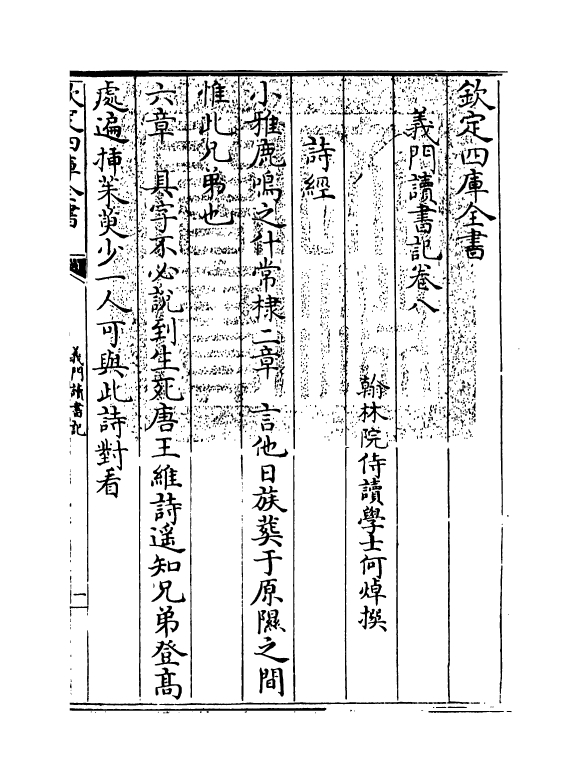 欽定四庫全書
義門讀書記卷八
翰林院侍讀學士何焯撰
詩經
小雅鹿鳴之什常棣二章　言他日族葬于原隰之間
惟此兄弟也
六章　具字不必說到生死唐王維詩遥知兄弟登髙
處遍揷茱萸少一人可與此詩對看
欽定四庫全書
義門讀書記
一